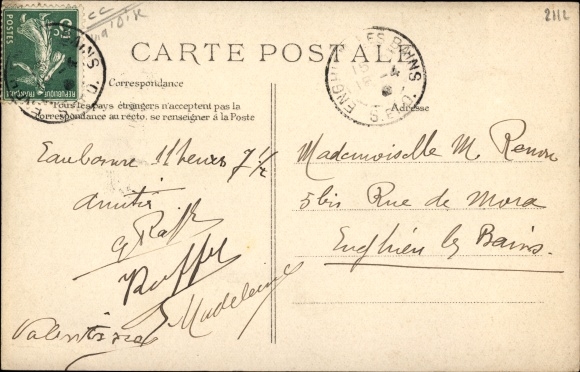 2112
CARTE POSTALE
Correspondance
Tous les pays étrangers n'acceptent pas la
correspondance au recto, se renseigner à la Poste
Adresse
POSTES
RÉPUBLIQUE FRANÇAISE
5c
ENGHIEN LES BAINS
S.-ET-O.
Eaubonne 11 heures 7 1/2
Amitiés
Madeleine
Valentine
Mademoiselle M. Renou
5 bis Rue de Mora
Enghien les Bains.